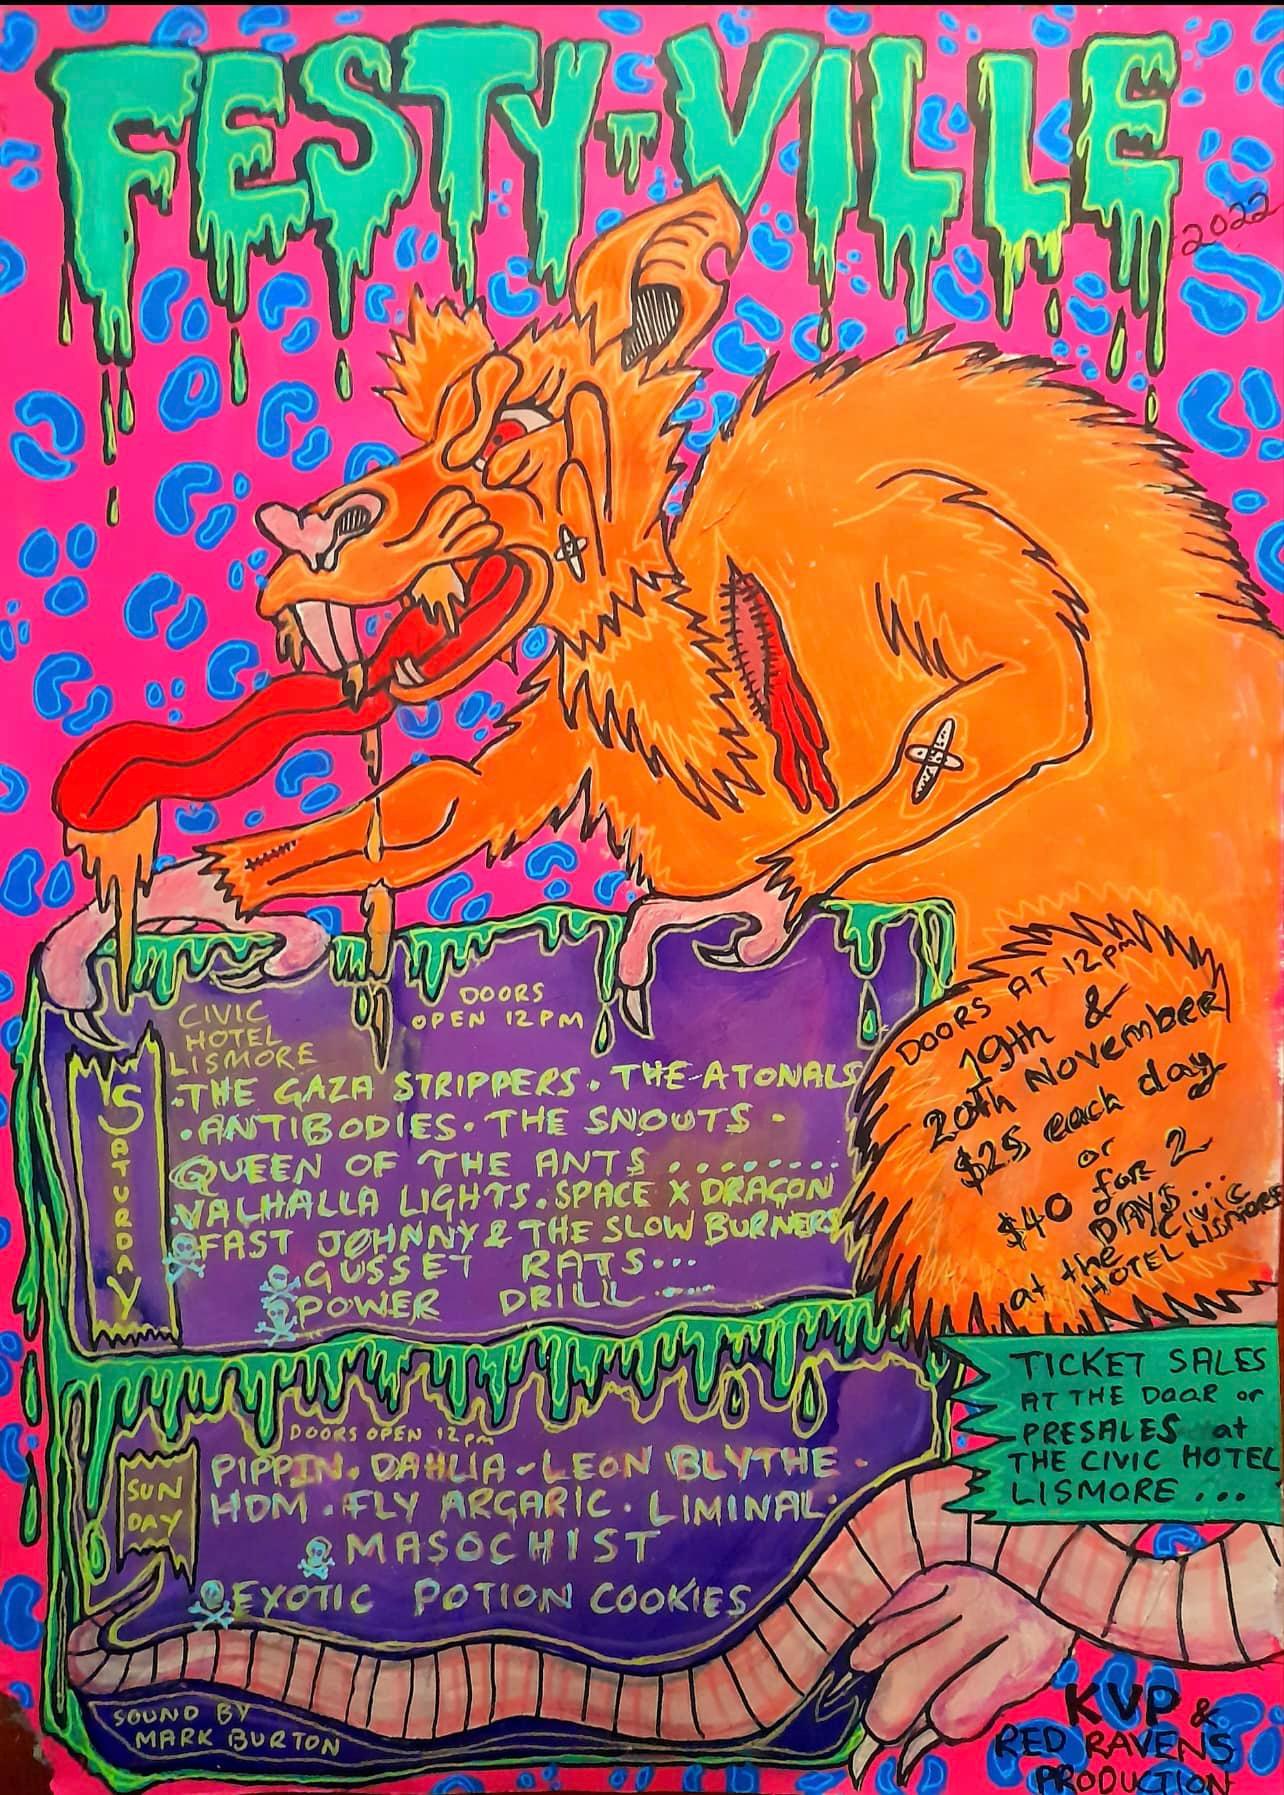 FESTY-VILLE
2022
CIVIC
HOTEL
LISMORE
DOORS
OPEN 12PM
SATURDAY
.THE GAZA STRIPPERS. THE ATONALS
.ANTIBODIES. THE SNOUTS -
QUEEN OF THE ANTS.........
.VALHALLA LIGHTS. SPACE X DRAGON
FAST JOHNNY & THE SLOW BURNERS
GUSSET RATS...
POWER DRILL.....
DOORS AT 12pm
19th &
20th November
$25 each day
or
$40 for 2
DAYS...
at the CIVIC
HOTEL LISMORE
TICKET SALES
AT THE DOOR or
PRESALES at
THE CIVIC HOTEL
LISMORE...
DOORS OPEN 12pm
SUN
DAY
PIPPIN. DAHLIA - LEON BLYTHE.
HDM. FLY ARGARIC. LIMINAL.
MASOCHIST
EXOTIC POTION COOKIES
SOUND BY
MARK BURTON
KVP &
RED RAVENS
PRODUCTION